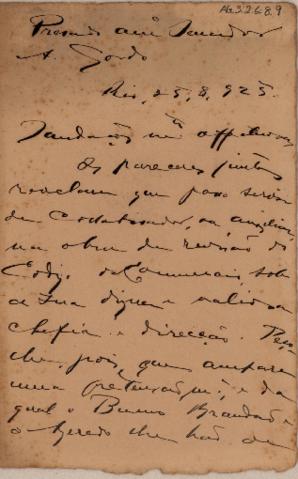 Prezado am.º Senador
A. Gordo
Rio, 25, 8, 925.
Saudações m.to affectuosas
Os pareceres juntos
revelam que posso servir
de Collaborador, ou auxiliar
na obra de revisão do
Codigo Commercial, sob
a sua digna e valiosa
chefia e direcção. Peço
lhe, pois, que ampare
uma pretensão m.ª, e da
qual o Bueno Brandão e
o Azeredo lhe hão de